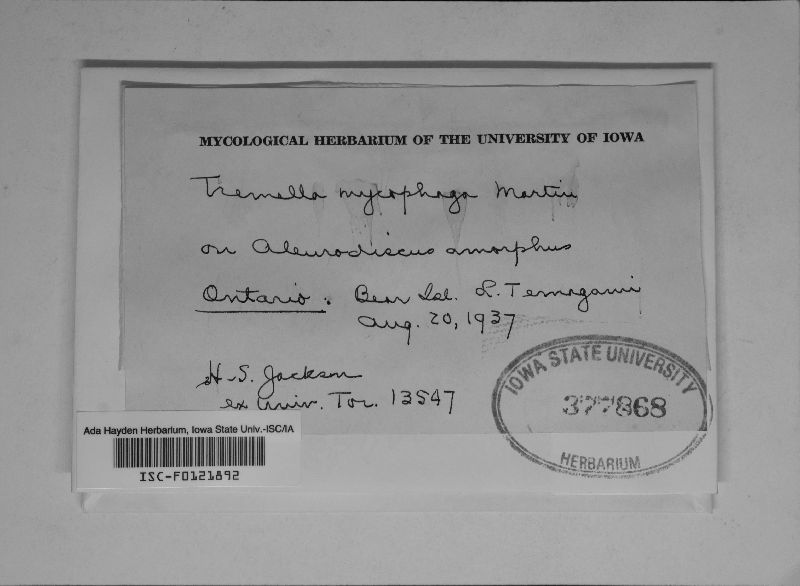 MYCOLOGICAL HERBARIUM OF THE UNIVERSITY OF IOWA
Tremella mycophaga Martin
on Aleurodiscus amorphus
Ontario. Bear Isl. L. Temagami
Aug. 20, 1937
H. S. Jackson
ex Univ. Tor. 13547
IOWA STATE UNIVERSITY
377868
HERBARIUM
Ada Hayden Herbarium, Iowa State Univ.-ISC/IA
ISC-F0121892